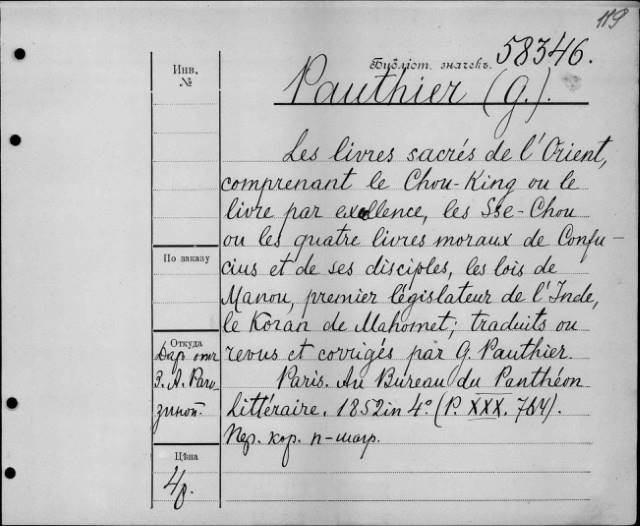 119
Инв.
№
Бібліот. значекъ. 58346.
Pauthier (G.).
Les livres sacrés de l'Orient,
comprenant le Chou-King ou le
livre par excellence, les Sse-Chou
ou les quatre livres moraux de Confu-
cius et de ses disciples, les lois de
Manou, premier législateur de l'Inde,
le Koran de Mahomet; traduits ou
revus et corrigés par G. Pauthier.
Paris. Au Bureau du Panthéon
Littéraire. 1852 in 4º (P. XXX. 764).
Пер. кор. п-шагр.
По заказу
Откуда
Дар от
З. А. Раго-
зиной.
Цѣна
4р.